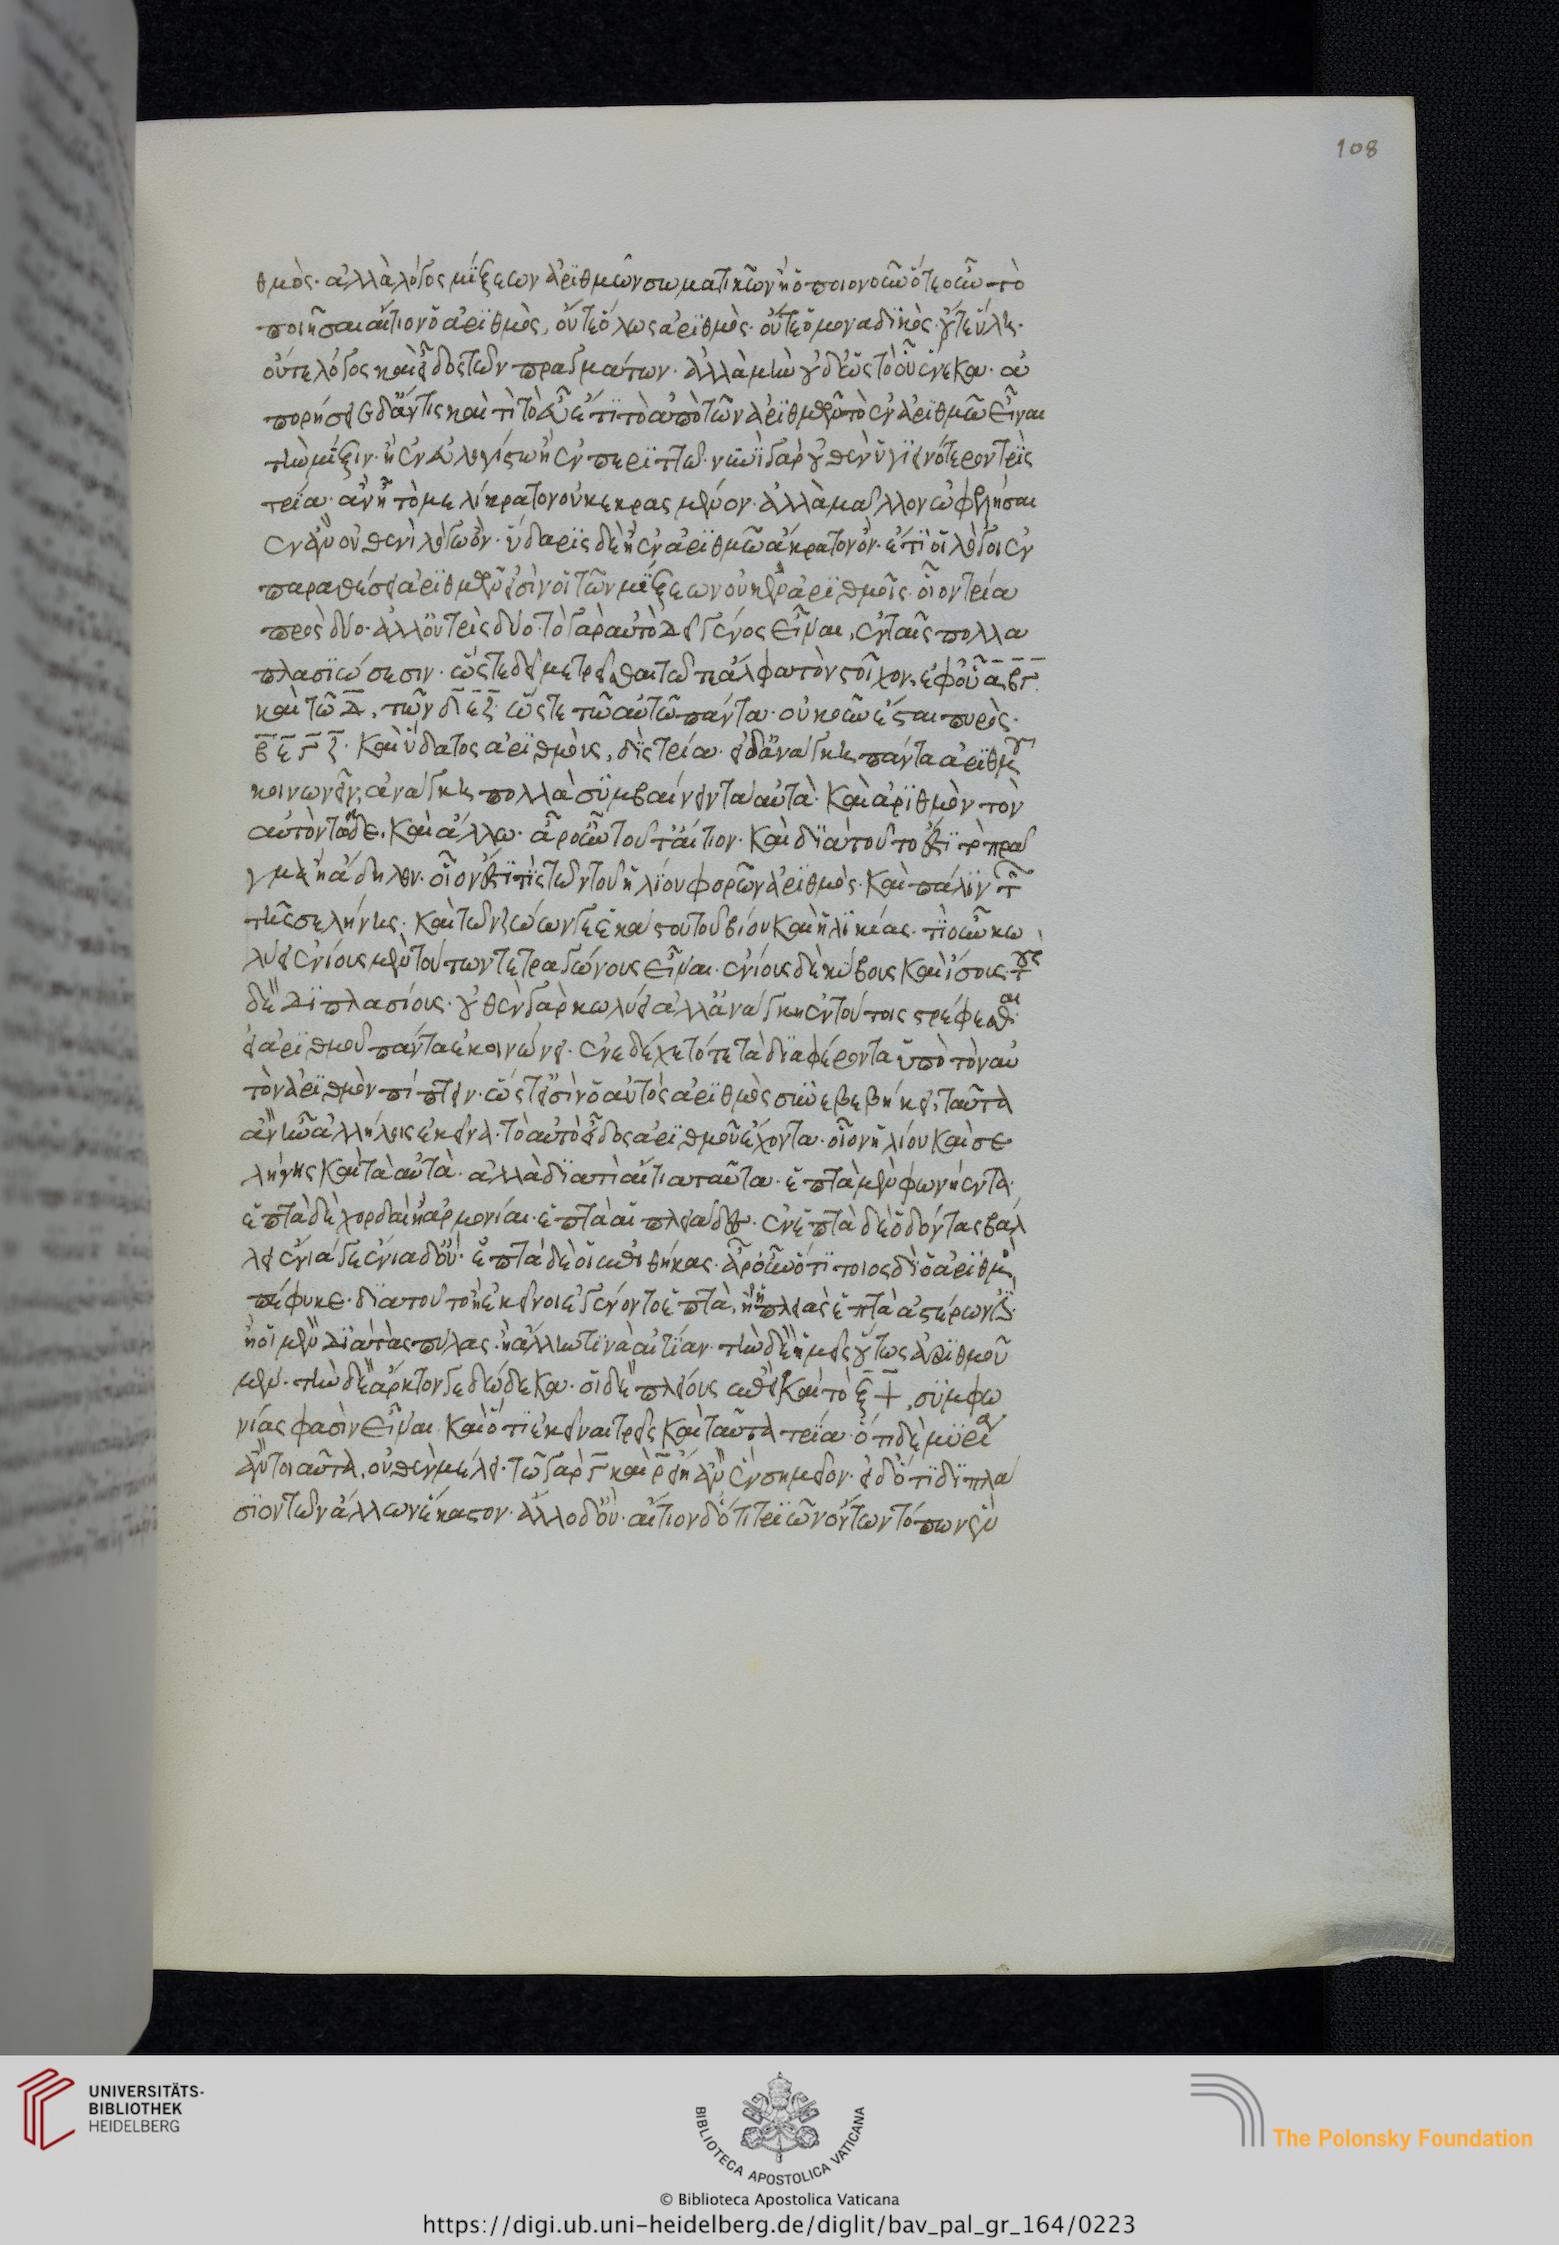 θμὸς· ἀλλὰ λόγος μίξεων ἀριθμῶν σωματικῶν ἢ ὁποιονοῦν ὅτε οὖν τὸ
ποιῆσαι αἴτιον ὁ ἀριθμὸς, οὔτε ὅλως ἀριθμὸς· οὔτε ὁ μοναδικὸς· οὔτε ὕλη·
οὔτε λόγος καὶ εἶδος τῶν πραγμάτων· ἀλλὰ μὴν οὐδὲ ὥς τὸ οὗ ἕνεκα· ἀ
πορήσειε δ' ἄν τις καὶ τί τὸ εὖ ἐστὶ τὸ ἀπὸ τῶν ἀριθμῶν τὸ ἐν ἀριθμῶ εἶναι
τὴν μίξιν· ἢ ἐν εὐλογίστω ἢ ἐν περιττῶ· νυνὶ γὰρ οὐθὲν ὑγιεινότερον τρὶς
τρία· ἂν ἦ τὸ μελίκρατον οὐ κεκραςμένον· ἀλλὰ μᾶλλον ὠφελήσαι
ἐν ἂν οὐθενὶ λόγω ὂν· ὑδαρὶς δὲ ἢ ἐν ἀριθμῶ ἄκρατον ὂν· ἔτι οἱ λόγοι ἐν
παραθέσει ἀριθμῶν εἰσὶν οἱ τῶν μίξεων οὐκ ἐν ἀριθμοῖς· οἷον τρία
πρὸς δύο· ἀλλ' οὐ τρὶς δύο· τὸ γὰρ αὐτὸ δεῖ γένος εἶναι, ἐν ταῖς πολλα
πλασιώσεσιν· ὥστε δεῖ μετρεῖσθαι τῶ τε ἄλφα τὸν στοῖχον, ἐφ' οὗ α β γ.
καὶ τῶ δ, τῶν δ ε ζ· ὥστε τῶ αὐτῶ πάντα· οὐκοῦν ἔσται πυρὸς·
β ε γ ζ· καὶ ὕδατος ἀριθμὸις, δὶς τρία· εἰ δ' ἀνάγκη πάντα ἀριθμοῦ
κοινωνεῖν, ἀνάγκη πολλὰ συμβαίνειν τὰ αὐτὰ· καὶ ἀριθμὸν τὸν
αὐτὸν τῶδε. καὶ ἄλλω· ἆρ' οὖν τοῦτ' αἴτιον· καὶ διὰ τοῦτο ἐστὶ τὸ πραῦ
γμα ἢ ἄδηλον· οἷον ἔστι τὶς τῶν τοῦ ἡλίου φορῶν ἀριθμὸς· καὶ πάλιν τῶν
τῆς σελήνης· καὶ τῶν ζώων γε ἑκάστου τοῦ βίου καὶ ἡλικίας· τί οὖν κω
λύει ἐνίους μὲν τούτων τετραγώνους εἶναι· ἐνίους δὲ κύβους καὶ ἴσους· τοὺς
δὲ διπλασίους· οὐθὲν γὰρ κωλύει ἀλλ' ἀνάγκη ἐν τούτοις στρέφεσθαι·
εἰ ἀριθμοῦ πάντα ἐκοινώνει· ἐνεδέχετό τε τὰ διαφέροντα ὑπὸ τὸν αὐ
τὸν ἀριθμὸν πίπτειν· ὥστ' εἰσὶν ὁ αὐτὸς ἀριθμὸς συνεβεβήκει, ταῦτὰ
ἂν ἦν ἀλλήλοις ἐκεῖνα· τὸ αὐτὸ εἶδος ἀριθμοῦ ἔχοντα· οἷον ἡλίου καὶ σε
λήνης καὶ τὰ αὐτὰ· ἀλλὰ διατὶ αἴτια ταῦτα· ἑπτὰ μὲν φωνήεντα·
ἑπτὰ δὲ χορδαὶ ἢ ἁρμονίαι· ἑπτὰ αἱ πλειάδες· ἐν ἑπτὰ δὲ ὀδόντας βάλ
λει ἔνιά γε ἔνια δ' οὔ· ἑπτὰ δὲ οἱ ἐπὶ θήβας· ἆρ' οὖν ὅτι τοιοςδὶ ὁ ἀριθμὸς
πέφυκε· διατοῦτο ἢ ἐκεῖνοι ἐγένοντο ἑπτὰ, ἢ ἡ πλειὰς ἑπτὰ ἀστέρων ἐστὶν·
ἢ οἱ μὲν διὰ τὰς πύλας· ἢ ἄλλην τινὰ αἰτίαν· τὴν δὲ ἡμεῖς οὕτως ἀριθμοῦ
μεν· τὴν δὲ ἄρκτον γε δώδεκα· οἱ δὲ πλείους ἐπεὶ καὶ τὸ ξ ψ, συμφω
νίας φασὶν εἶναι· καὶ ὅτι ἐκεῖναι τρεῖς καὶ ταῦτα τρία· ὅτι δὲ μυρία
ἂν τοιαῦτα, οὐθὲν μέλει· τῶ γὰρ γ καὶ ρ εἴη ἂν ἓν σημεῖον· εἰ δ' ὅτι διπλά
σιον τῶν ἄλλων ἕκαστον· ἄλλο δ' οὔ· αἴτιον δ' ὅτι τριῶν ὄντων τόπων ἓν
108
UNIVERSITÄTS-
BIBLIOTHEK
HEIDELBERG
BIBLIOTECA APOSTOLICA VATICANA
The Polonsky Foundation
© Biblioteca Apostolica Vaticana
https://digi.ub.uni-heidelberg.de/diglit/bav_pal_gr_164/0223